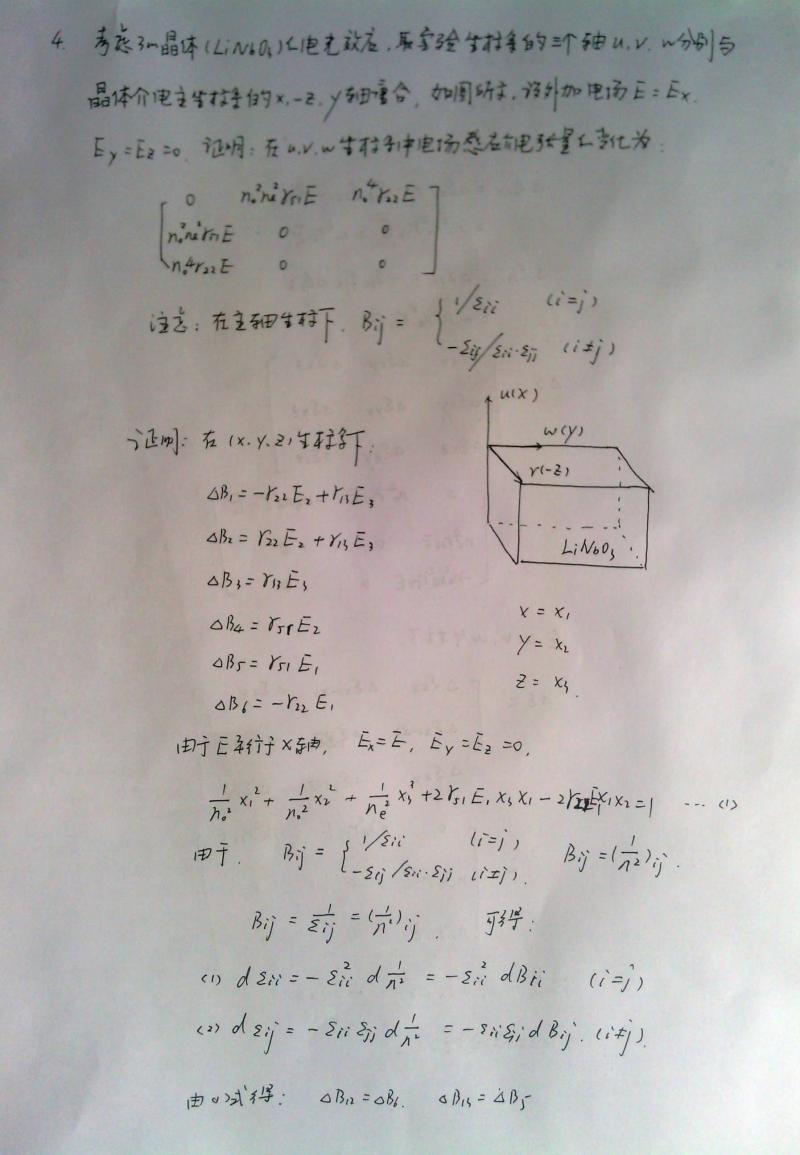 4. 考虑3m晶体(LiNbO₃)的电光效应,某实验坐标系的三个轴u.v.w分别与
晶体介电主坐标系的x.-z.y轴重合,如图所示,设外加电场E=Eₓ.
E_y=E_z=0. 证明:在u.v.w坐标系中电场感应介电张量的变化为:
0 n₀²nₑ²γ₅₁E n₀⁴γ₂₂E
n₀²nₑ²γ₅₁E 0 0
n₀⁴γ₂₂E 0 0
注意:在主轴坐标下. Bij = { 1/εii (i=j)
-εij/εii·εjj (i≠j)
u(X)
w(Y)
v(-Z)
LiNbO₃
证明:在(x.y.z)坐标系下:
ΔB₁=-γ₂₂E₂+γ₁₃E₃
ΔB₂=γ₂₂E₂+γ₁₃E₃
ΔB₃=γ₁₃E₃
ΔB₄=γ₅₁E₂
ΔB₅=γ₅₁E₁
ΔB₆=-γ₂₂E₁
x = x₁
y = x₂
z = x₃
由于E平行于X轴, Eₓ=E, E_y=E_z=0,
1/n₀² x₁² + 1/n₀² x₂² + 1/nₑ² x₃² + 2γ₅₁E₁x₃x₁ - 2γ₂₂E₁x₁x₂ = 1 ... (1)
由于. Bij = { 1/εii (i=j)
-εij/εii·εjj (i≠j). Bij = (1/n²)ij.
Bij = 1/εij = (1/n²)ij. 可得:
(1) dεii = -εii² d 1/n² = -εii² dBii (i=j)
(2) dεij = -εii εjj d 1/n² = -εii εjj dBij. (i≠j).
由(1)式得: ΔB₁₂=ΔB₆. ΔB₁₃=ΔB₅